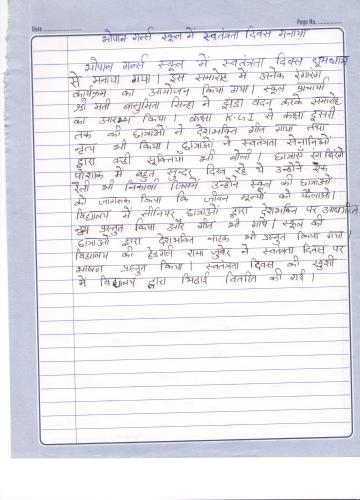 Date
Page No.
भोपाल गर्ल्स स्कूल में स्वतंत्रता दिवस मनाया
भोपाल गर्ल्स स्कूल में स्वतंत्रता दिवस धूमधाम
से मनाया गया। इस समारोह में अनेक रंगारंग
कार्यक्रम का आयोजन किया गया। स्कूल प्राचार्या
श्री मती वासुमिता सिन्हा ने झंडा वंदन करके समारोह
का आरम्भ किया। कक्षा K.G.I से कक्षा दूसरी
तक की छात्राओं ने देशभक्ति गीत गाया तथा
नृत्य भी किया। छात्राओं ने स्वतंत्रता सेनानियों
द्वारा कही सूक्तियाँ भी बोली। छात्राएँ रंग बिरंगे
पोशाक में बहुत सुन्दर दिख रहे थे उन्होंने एक
रैली भी निकाली जिसमें उन्होंने स्कूल की छात्राओं
को जागरूक किया कि जीवन मूल्यों को फैलाओ।
विद्यालय में सीनियर छात्राओं द्वारा देशभक्ति पर आधारित
नृत्य प्रस्तुत किया और गीत भी गाये। स्कूल की
छात्राओं द्वारा देशभक्ति नाटक भी प्रस्तुत किया गया।
विद्यालय की हेडगर्ल राना जुबेर ने स्वतंत्रता दिवस पर
भाषण प्रस्तुत किया। स्वतंत्रता दिवस की खुशी
में विद्यालय द्वारा मिठाई वितरित की गई।